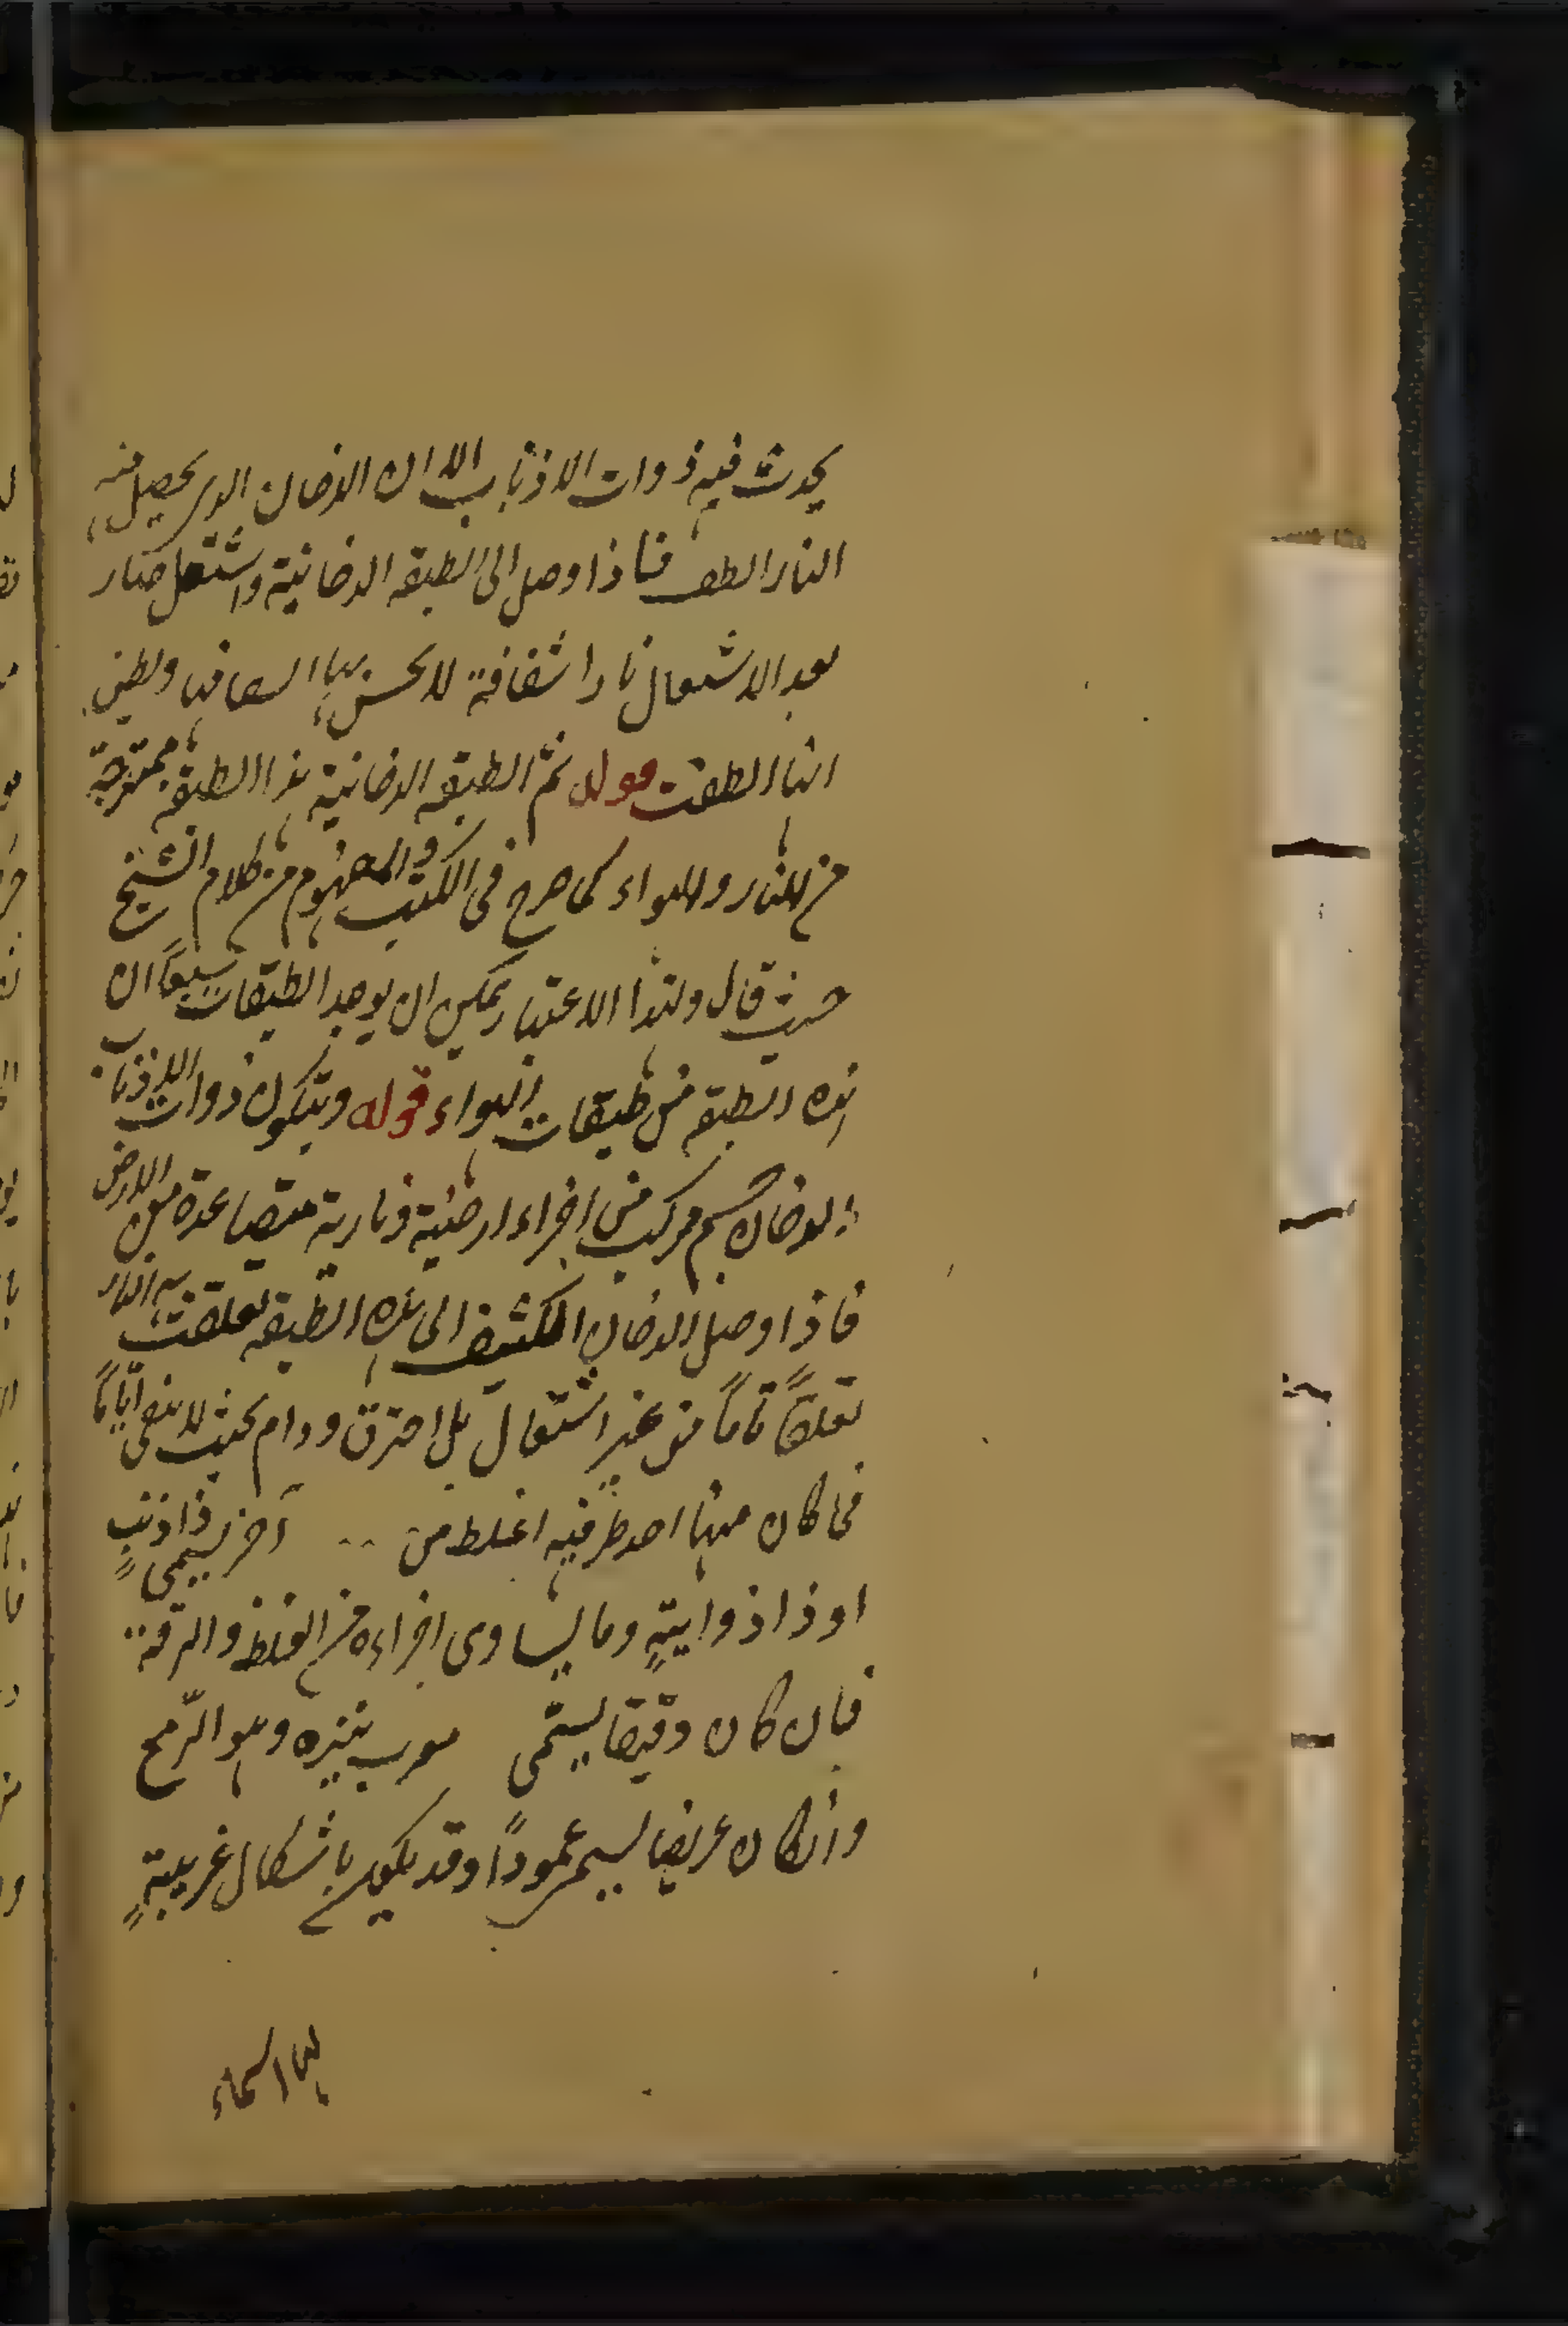 يحدث فيه ذوات الاذناب الا ان الدخان الذى يحصل منه
النار الطف فاذا وصل الى الطبقة الدخانية واشتعل صار
بعد الاشتعال نارا شفافة لا يحس بها لصفائها ولطفها
انها انطفت قوله ثم الطبقة الدخانية هذا الطبقة ممتزجة
من النار والهواء كما صرح فى الكتب والمفهوم من كلام الشيخ
حيث قال ولهذا الاعتبار يمكن ان يوجد الطبقات سبعًا ان
هذه الطبقة من طبقات الهواء قوله ويتكون ذوات الاذناب
الدخان جسم مركب من اجزاء ارضية ونارية متصاعدة من الارض
فاذا وصل الدخان الكثيف الى هذه الطبقة تعلقت به النار
تعلقًا تامًا من غير اشتعال بل احترق ودام بحيث لا ينطفى ايّامًا
فما كان منها احد طرفيه اغلظ من آخر يسمى ذا ذنبٍ
او ذا ذوابةٍ وما يساوى اجزاءه من الغلظ والرقة
فان كان دقيقا يسمّى معرب نيزه وهو الرّمح
وان كان عريضا يسمى عمودًا وقد يكون باشكال غريبةٍ
السماء